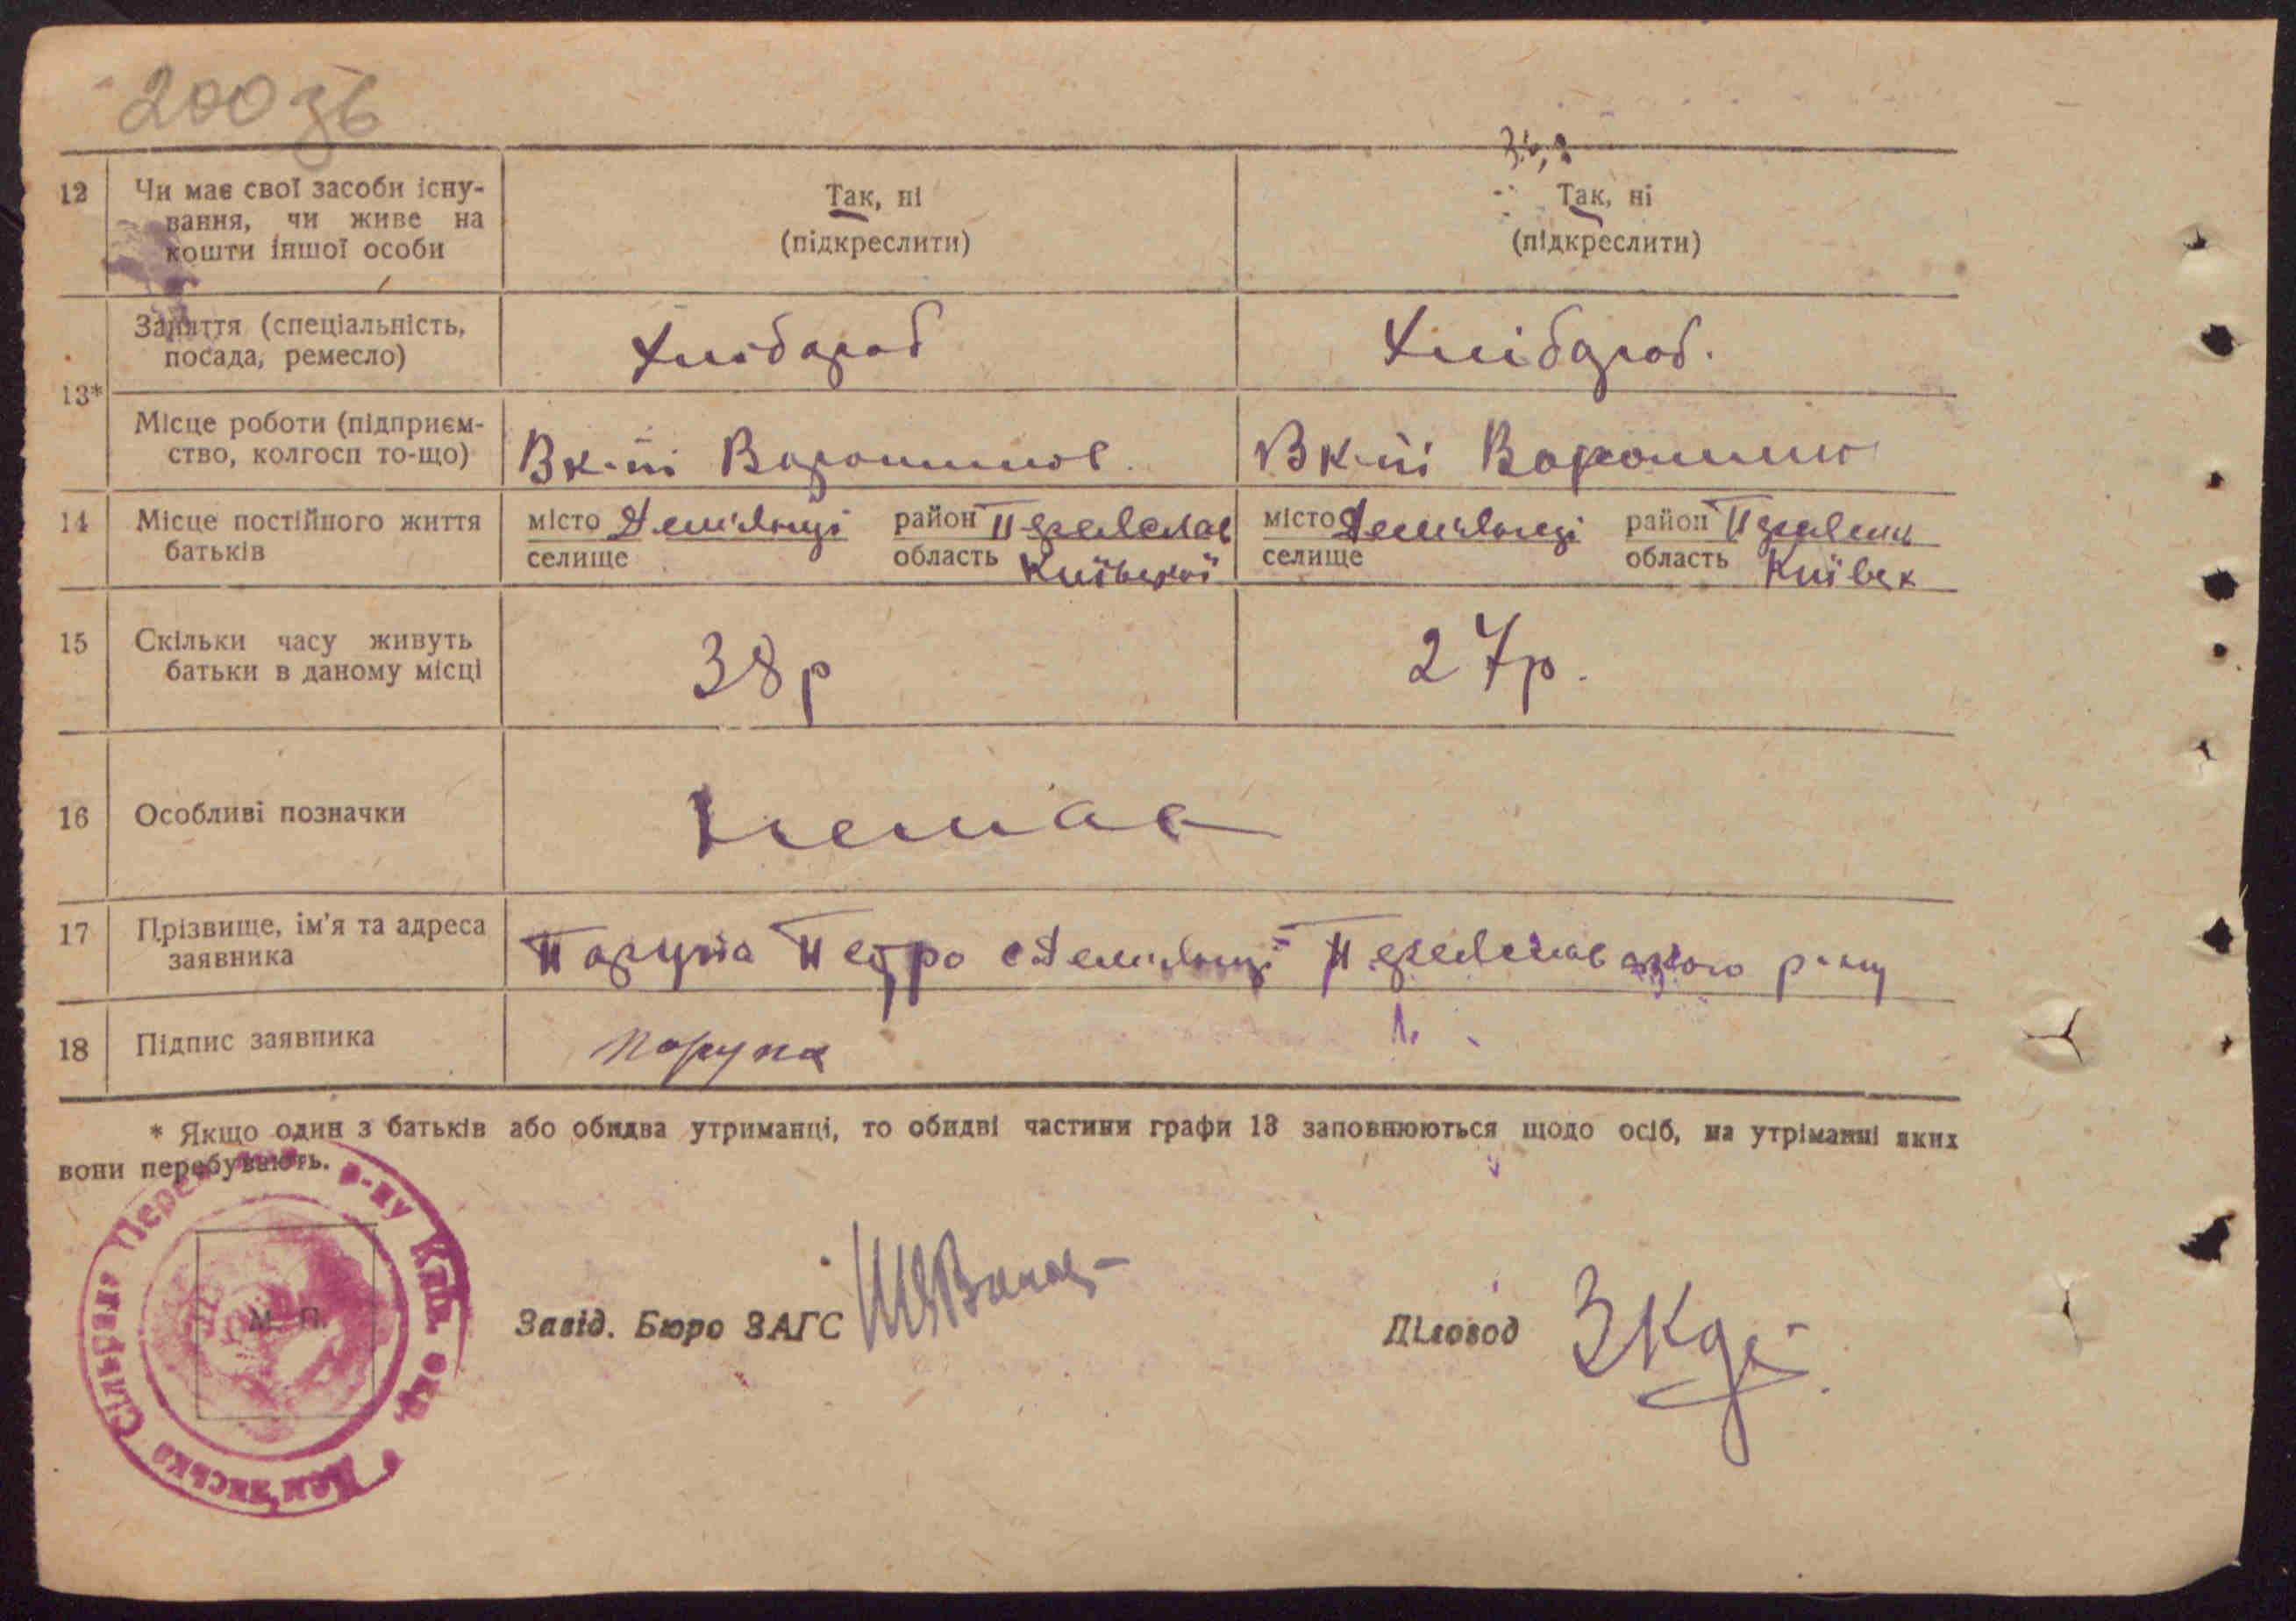 200 зв
12 Чи має свої засоби існу- Так, ні Так, ні
вання, чи живе на (підкреслити) (підкреслити)
кошти іншої особи
13* Заняття (спеціальність, Хлібороб Хлібороб.
посада, ремесло)
Місце роботи (підприєм- В к-пі Ворошилов. В к-пі Ворошилов
ство, колгосп то-що)
14 Місце постійного життя місто Дем'янці район Переяслав місто Дем'янці район Переяслав
батьків селище область Київської селище область Київськ
15 Скільки часу живуть 38 р 27 р.
батьки в даному місці
16 Особливі позначки Немає
17 Прізвище, ім'я та адреса Порупа Петро с Дем'янці Переяславського р-ну
заявника
18 Підпис заявника Порупа
* Якщо один з батьків або обидва утриманці, то обидві частини графи 13 заповнюються щодо осіб, на утріманні яких
вони перебувають.
М. П.
Завід. Бюро ЗАГС
Діловод
Дем'янська Сільрада р-ну Київ. окр.